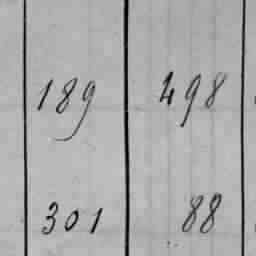 189 498
301 88